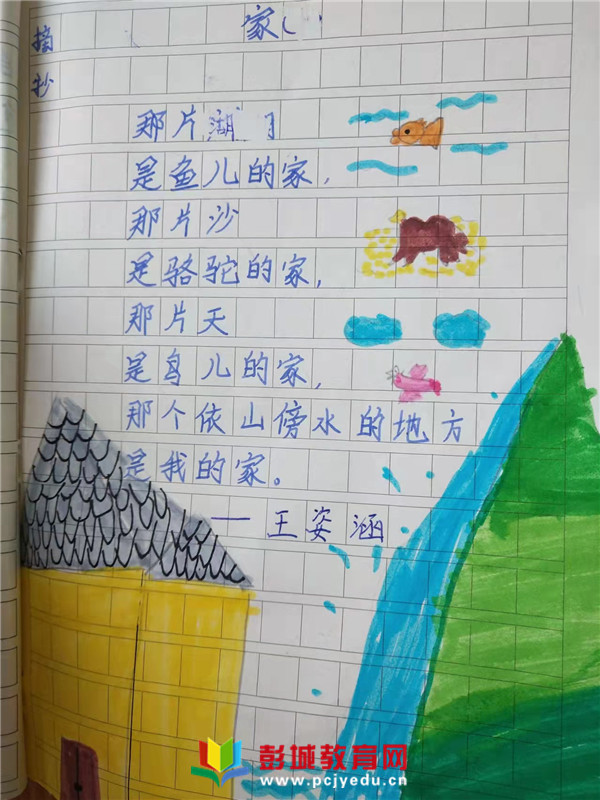 摘抄
家
那片湖
是鱼儿的家,
那片沙
是骆驼的家,
那片天
是鸟儿的家,
那个依山傍水的地方
是我的家。
——王姿涵
彭城教育网
www.pcjyedu.cn